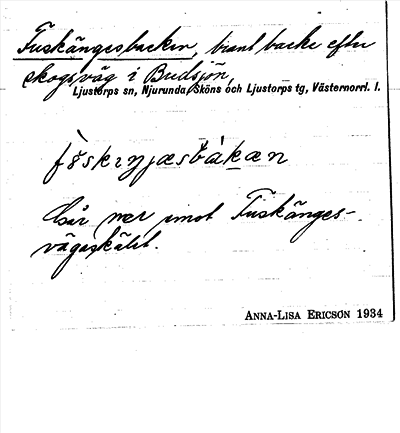 Fuskängesbacken, brant backe efter
skogsväg i Budsjön,
Ljustorps sn, Njurunda, Sköns och Ljustorps tg, Västernorrl. l.
Går ner imot Fuskänges-
vägaskälet.
ANNA-LISA ERICSON 1934